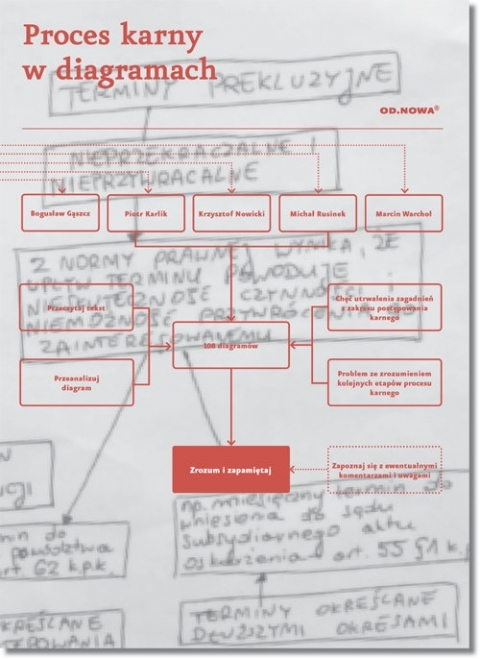 Proces karny
w diagramach
TERMINY PREKLUZYJNE
OD.NOWA®
NIEPRZEKRACZALNE I
NIEPRZYWRACALNE
Bogusław Gąszcz
Piotr Karlik
Krzysztof Nowicki
Michał Rusinek
Marcin Warchoł
Z NORMY PRAWNEJ WYNIKA, ŻE
UPŁYW TERMINU POWODUJE
NIESKUTECZNOŚĆ CZYNNOŚCI I
NIEMOŻNOŚĆ PRZYWRÓCENIA
ZAINTERESOWANEMU
Przeczytaj tekst
Chęć utrwalenia zagadnień
z zakresu postępowania
karnego
108 diagramów
Przeanalizuj
diagram
Problem ze zrozumieniem
kolejnych etapów procesu
karnego
Zrozum i zapamiętaj
Zapoznaj się z ewentualnymi
komentarzami i uwagami
np. miesięczny termin do
wniesienia do sądu
subsydiarnego aktu
oskarżenia art. 55 §1 k.
min do
powództwa
art. 62 k.p.k.
OKREŚLANE
TERMINY OKREŚLANE
DŁUŻSZYMI OKRESAMI